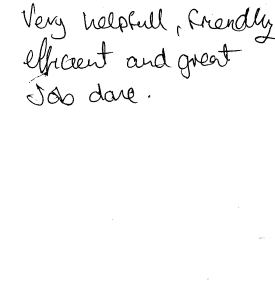 Very helpfull, friendly
efficient and great
Job done.